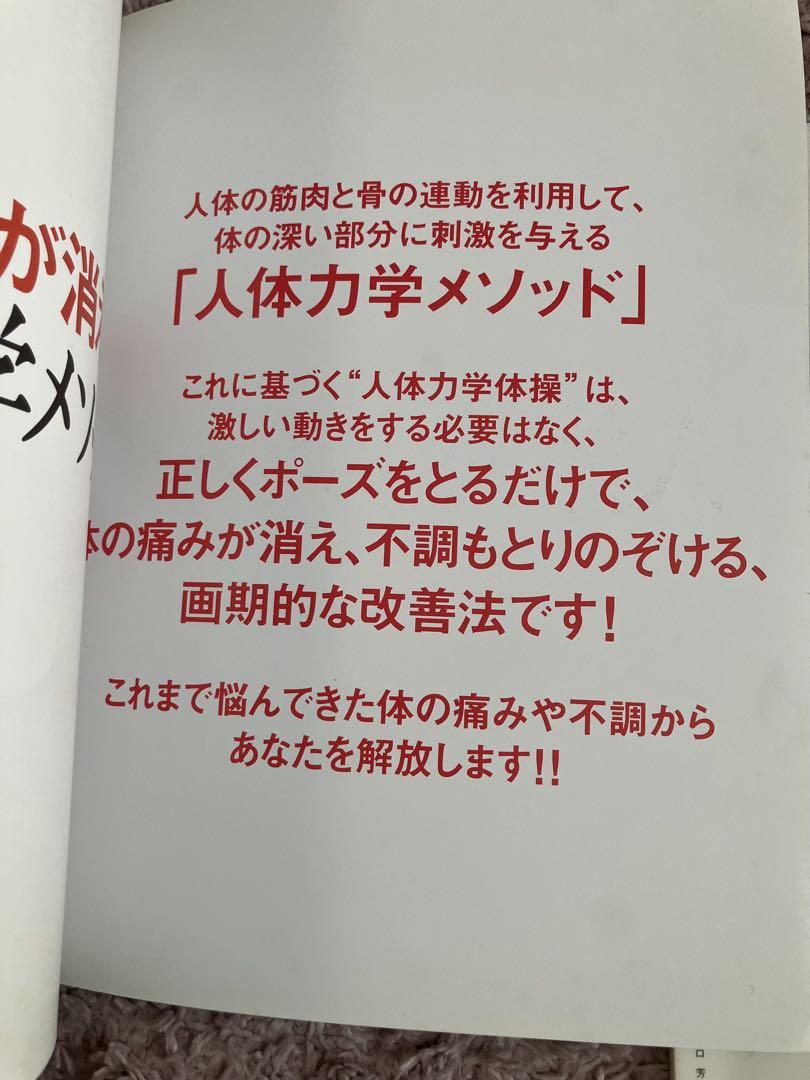 が消
メソ
人体の筋肉と骨の連動を利用して、
体の深い部分に刺激を与える
「人体力学メソッド」
これに基づく“人体力学体操”は、
激しい動きをする必要はなく、
正しくポーズをとるだけで、
体の痛みが消え、不調もとりのぞける、
画期的な改善法です!
これまで悩んできた体の痛みや不調から
あなたを解放します!!
口 芳